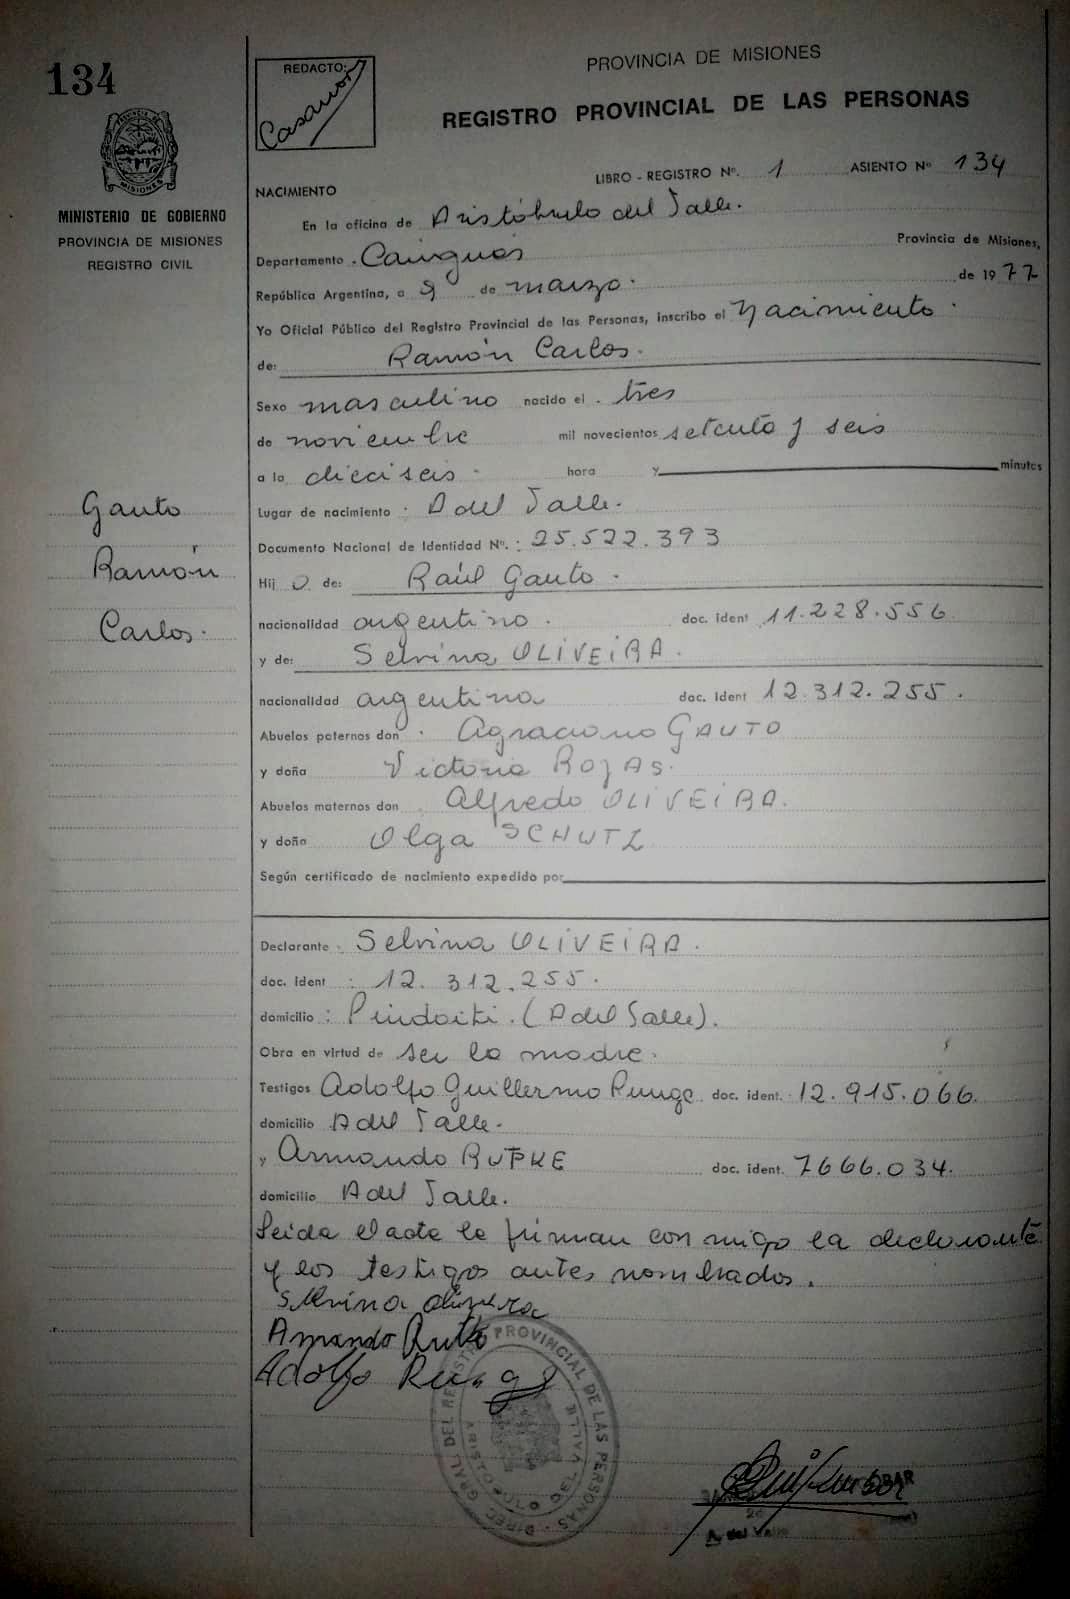 134
REDACTO:
Casanor
PROVINCIA DE MISIONES
REGISTRO PROVINCIAL DE LAS PERSONAS
MISIONES
MINISTERIO DE GOBIERNO
PROVINCIA DE MISIONES
REGISTRO CIVIL
LIBRO - REGISTRO Nº. 1 ASIENTO Nº 134
NACIMIENTO
En la oficina de Aristóbulo del Valle.
Departamento Cainguás Provincia de Misiones,
República Argentina, a 9 de marzo de 1977
Yo Oficial Público del Registro Provincial de las Personas, inscribo el Nacimiento
de: Ramón Carlos.
Sexo masculino nacido el tres
de noviembre mil novecientos setenta y seis
a la dieciseis hora y minutos
Gauto
Ramón
Carlos.
Lugar de nacimiento A del Valle.
Documento Nacional de Identidad Nº.: 25.522.393
Hij o de: Raúl Gauto
nacionalidad argentino. doc. ident 11.228.556
y de: Selvina OLIVEIRA.
nacionalidad argentina doc. ident 12.312.255.
Abuelos paternos don Agraciano GAUTO
y doña Victoria ROJAS.
Abuelos maternos don Alfredo OLIVEIRA.
y doña Olga SCHUTZ
Según certificado de nacimiento expedido por
Declarante: Selvina OLIVEIRA.
doc. ident : 12.312.255.
domicilio: Pindoiti. (A del Valle).
Obra en virtud de ser la madre.
Testigos Adolfo Guillermo Runge doc. ident. 12.915.066.
domicilio A del Valle.
y Armando RUPKE doc. ident. 7666.034.
domicilio A del Valle.
Leida el acta la firman con migo la declarante
y los testigos antes nombrados.
Selvina Oliveira
Armando
Adolfo Runge
DIREC. GRAL. DEL REGISTRO PROVINCIAL DE LAS PERSONAS
ARISTOBULO DEL VALLE
A. del Valle